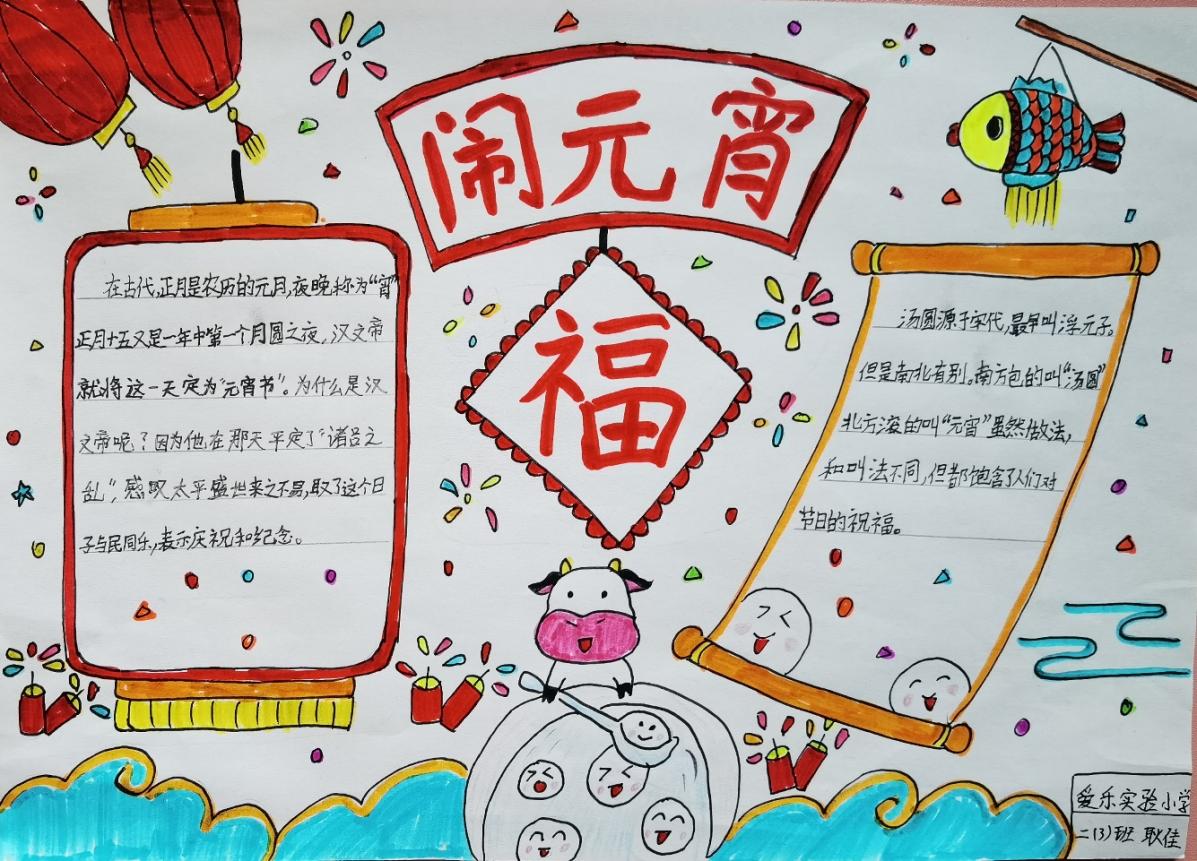 闹元宵
福
在古代,正月是农历的元月,夜晚称为“宵”
正月十五又是一年中第一个月圆之夜,汉文帝
就将这一天定为“元宵节”。为什么是汉
文帝呢?因为他在那天平定了“诸吕之
乱”,感叹太平盛世来之不易,取了这个日
子与民同乐,表示庆祝和纪念。
汤圆源于宋代,最早叫浮元子。
但是南北有别。南方包的叫“汤圆”
北方滚的叫“元宵”虽然做法,
和叫法不同,但都饱含了人们对
节日的祝福。
爱乐实验小学
二(3)班 耿佳